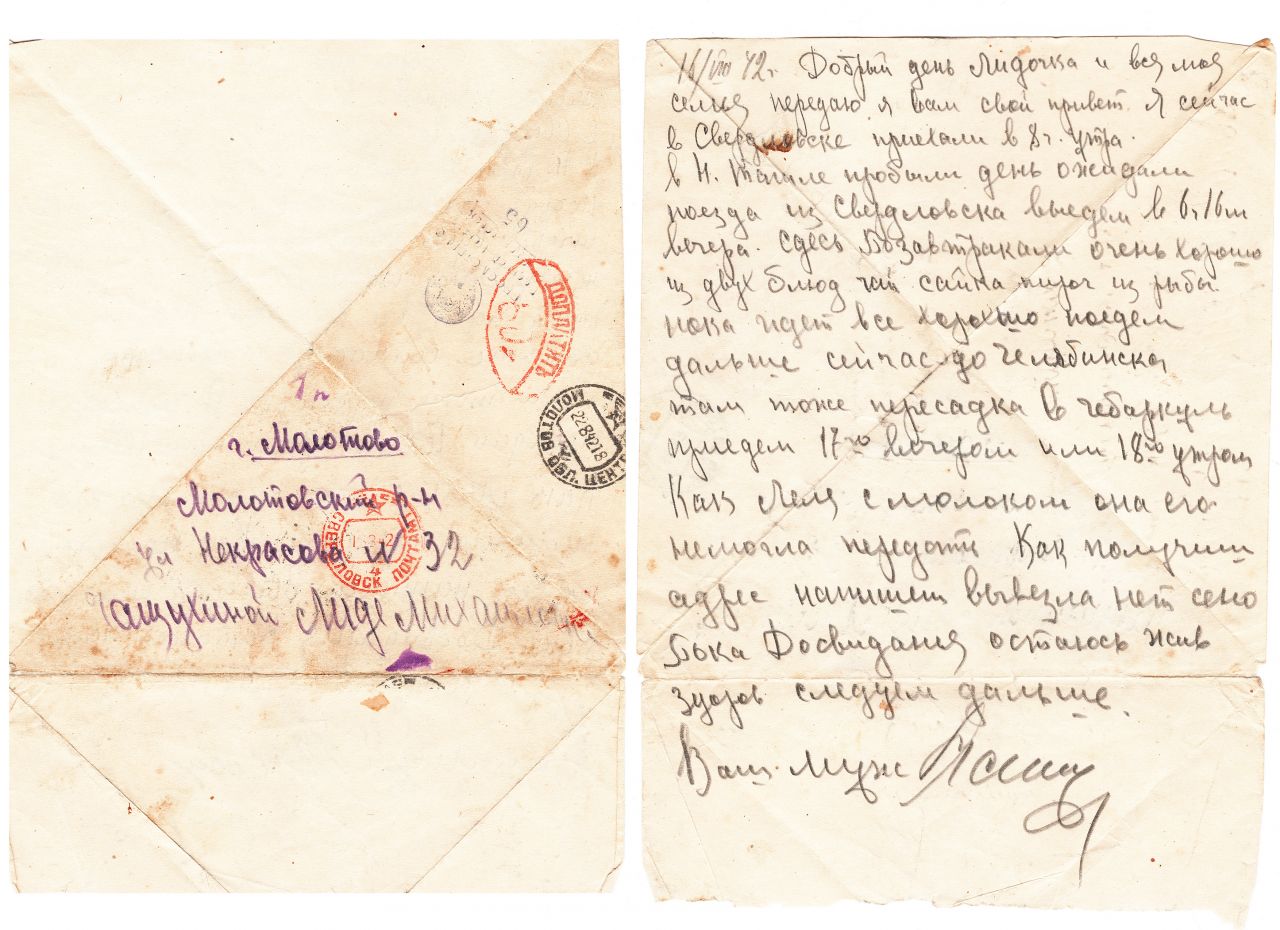 1 п
г. Молотово
Молотовский р-н
ул Некрасова № 32
Чащухиной Лиде Михайловне
ДОПЛАТИТЬ
МОЛОТОВ ОБЛ. ЦЕНТР
22842 18
СВЕРДЛОВСК ПОЧТАМТ
4
16/VIII 42г. Добрый день Лидочка и вся моя
семья передаю я вам свой привет. Я сейчас
в Свердловске приехали в 8 г. утра.
в Н. Тагиле пробыли день ожидали
поезда из Свердловска выедем в 6 ч 16 м
вечера. Сдесь позавтракали очень хорошо
из двух блюд чай сайка пирог из рыбы.
пока идет все хорошо поедем
дальше сейчас до Челябинска
там тоже пересадка в Чебаркуль
приедем 17го вечером или 18го утром
Как Леля с молоком она его
немогла передать Как получили
адрес напишет вывезла нет сено
Бока Досвидания остаюсь жив
здоров следуем дальше.
Ваш муж